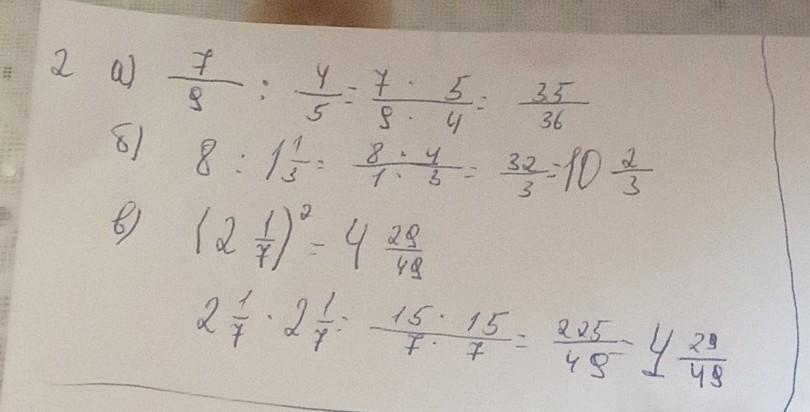 2 а) 7/9 : 4/5 = 7 · 5 / 9 · 4 = 35/36
б) 8 : 1 1/3 = 8 · 4 / 1 · 3 = 32/3 = 10 2/3
в) (2 1/7)² = 4 29/49
2 1/7 · 2 1/7 = 15 · 15 / 7 · 7 = 225/49 = 4 29/49